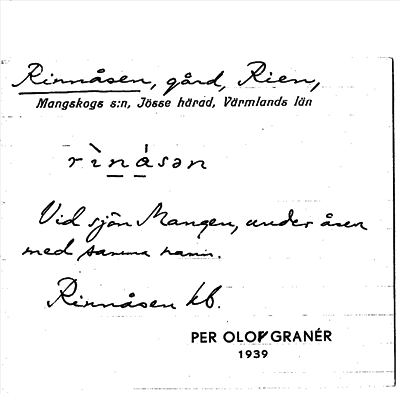 Rinnåsen, gård, Rien,
Mangskogs s:n, Jösse härad, Värmlands län
rìnásən
Vid sjön Mangen, under åsen
med samma namn.
Rinnåsen kb.
PER OLOF GRANÉR
1939